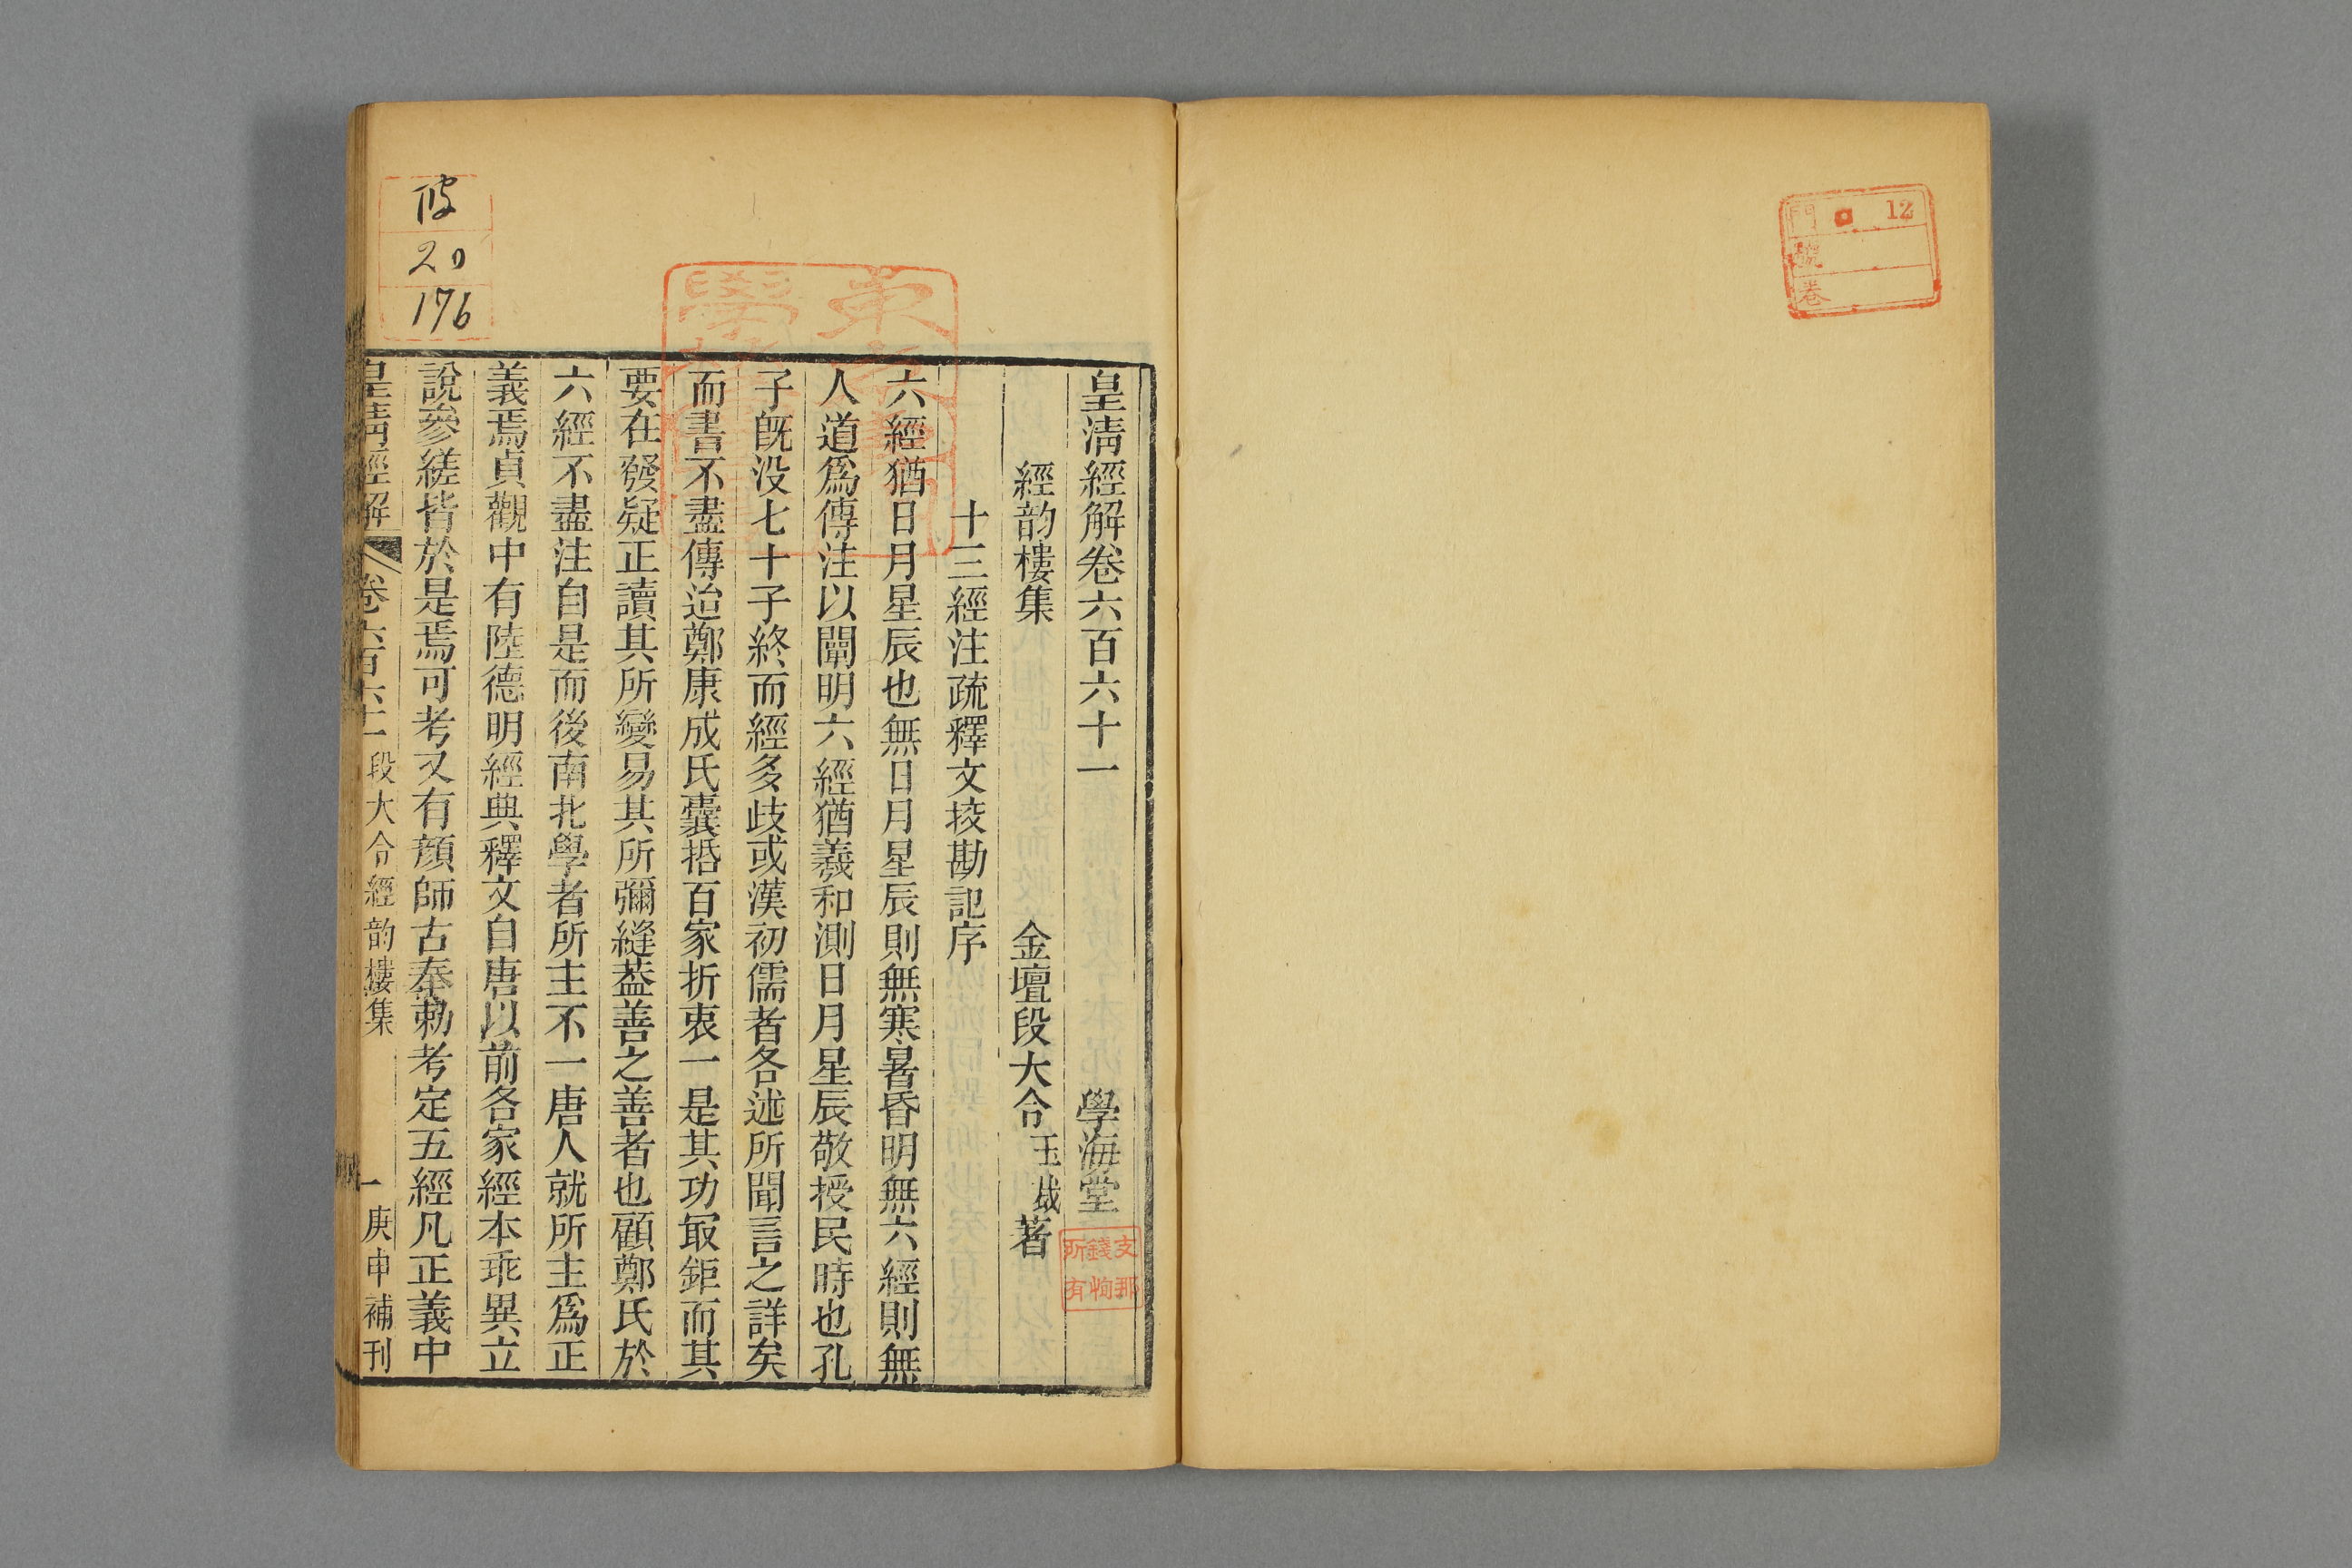 門 12
號
卷
皇清經解卷六百六十一 學海堂
經韵樓集 金壇段大令玉裁著
十三經注疏釋文挍勘記序
六經猶日月星辰也無日月星辰則無寒暑昏明無六經則無
人道爲傳注以闡明六經猶羲和測日月星辰敬授民時也孔
子旣没七十子終而經多歧或漢初儒者各述所聞言之詳矣
而書不盡傳迨鄭康成氏囊括百家折衷一是其功㝡鉅而其
要在發疑正讀其所變易其所彌縫葢善之善者也顧鄭氏於
六經不盡注自是而後南北學者所主不一唐人就所主爲正
義焉貞觀中有陸德明經典釋文自唐以前各家經本乖異立
說參縒皆於是焉可考又有顏師古奉勅考定五經凡正義中
皇清經解 卷六百六十一 段大令經韵樓集 一 庚申補刊
支那
錢恂
所有
彼
20
176